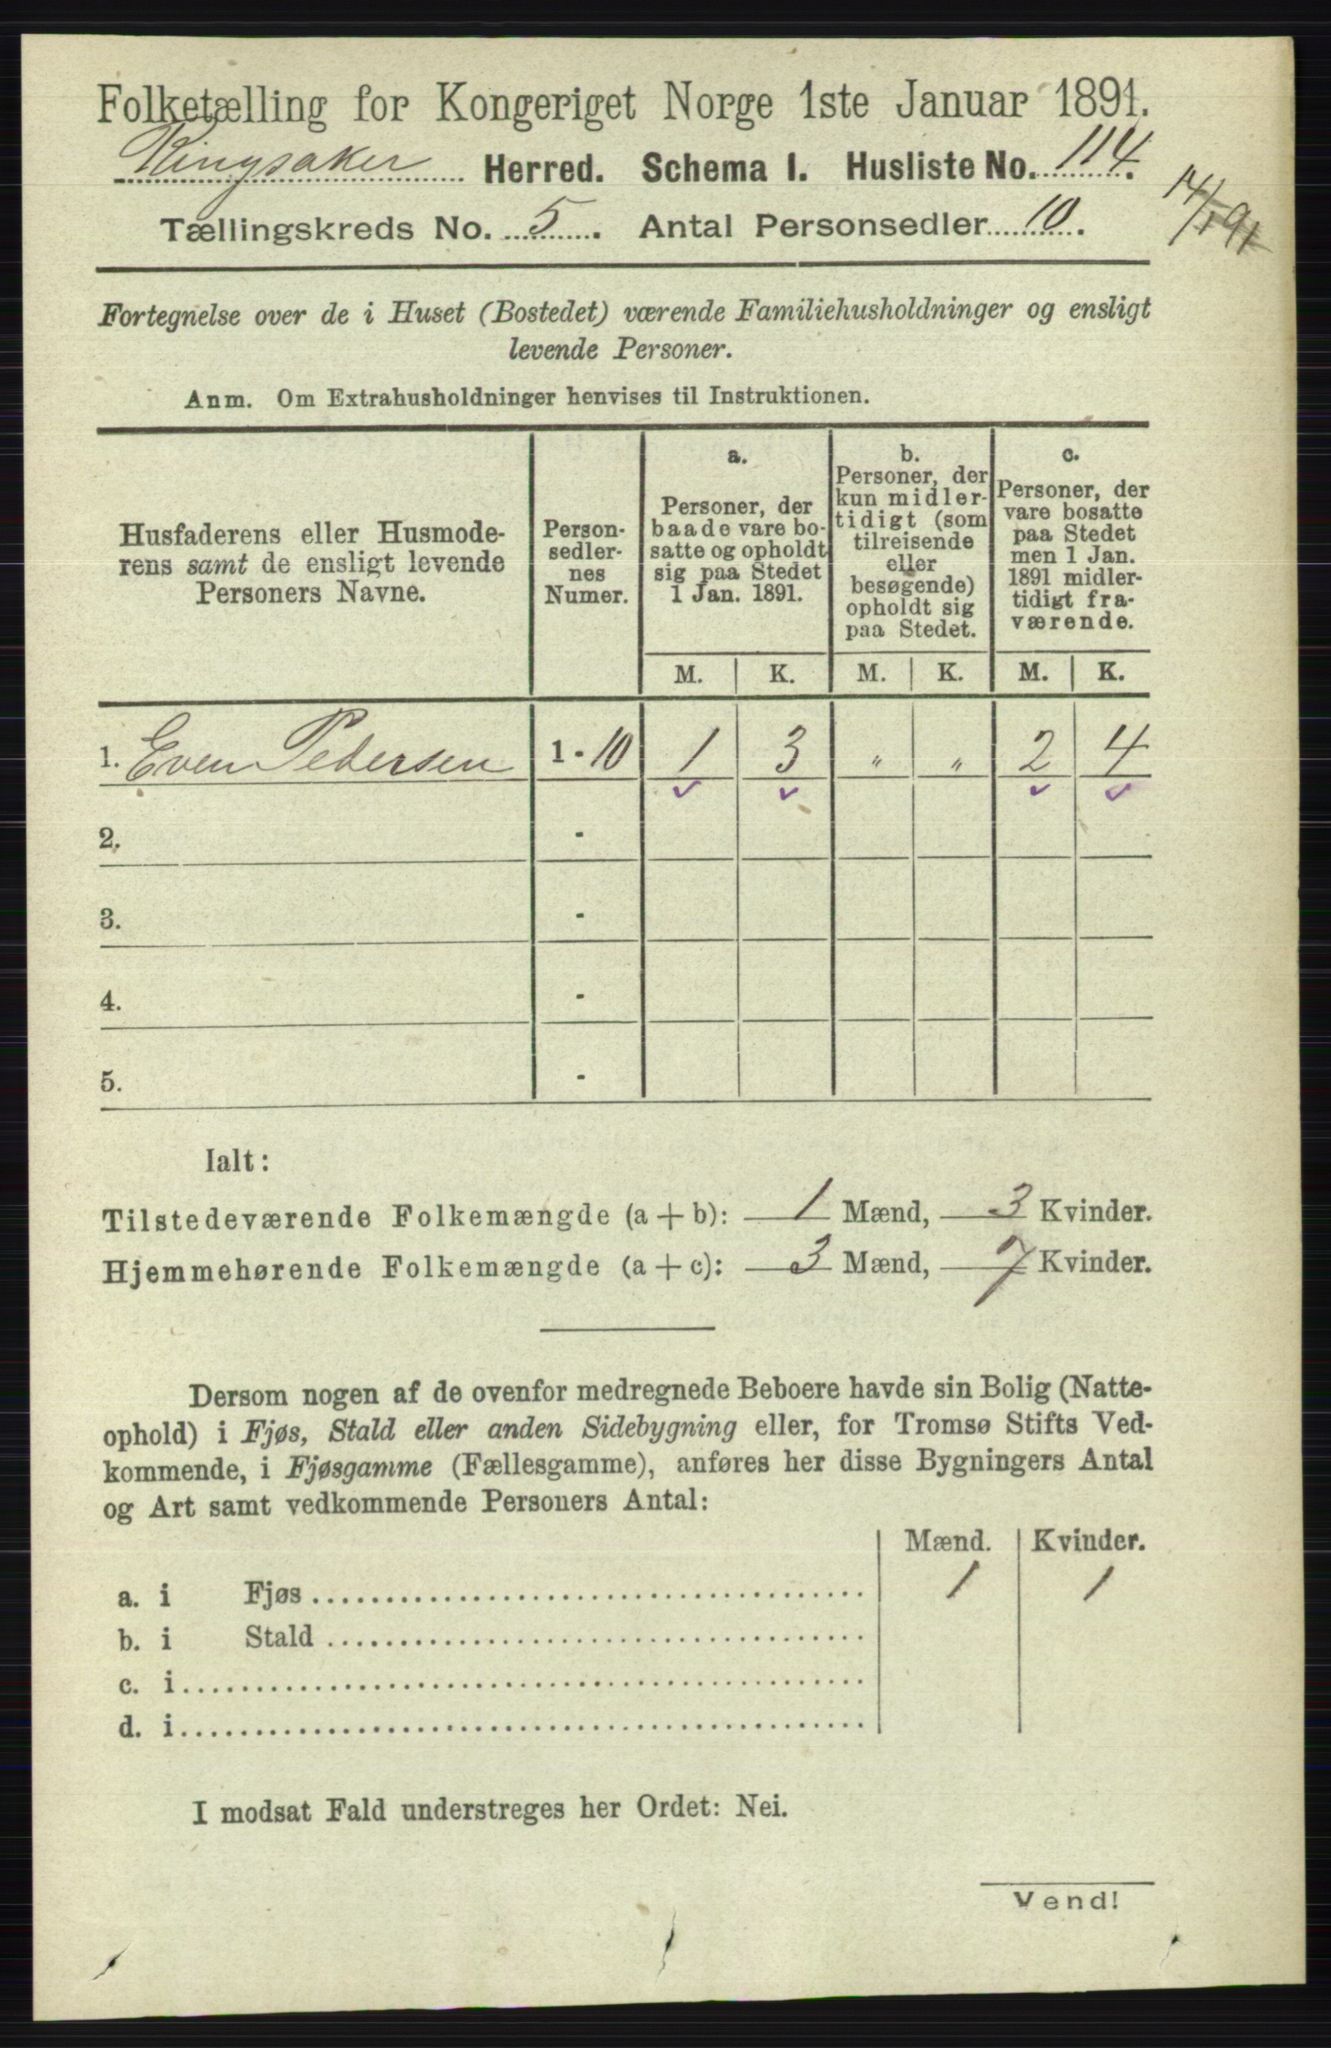 Folketælling for Kongeriget Norge 1ste Januar 1891.
Ringsaker Herred. Schema I. Husliste No. 114.
Tællingskreds No. 5. Antal Personsedler 10.
14/1 91
Fortegnelse over de i Huset (Bostedet) værende Familiehusholdninger og ensligt
levende Personer.
Anm. Om Extrahusholdninger henvises til Instruktionen.
Husfaderens eller Husmode-
rens samt de ensligt levende
Personers Navne.
Person-
sedler-
nes
Numer.
a.
Personer, der
baade vare bo-
satte og opholdt
sig paa Stedet
1 Jan. 1891.
b.
Personer, der
kun midler-
tidigt (som
tilreisende
eller
besøgende)
opholdt sig
paa Stedet.
c.
Personer, der
vare bosatte
paa Stedet
men 1 Jan.
1891 midler-
tidigt fra-
værende.
M. K. M. K. M. K.
1. Even Pedersen 1 - 10 1 3 " " 2 4
2. -
3. -
4. -
5. -
Ialt:
Tilstedeværende Folkemængde (a + b): 1 Mænd, 3 Kvinder.
Hjemmehørende Folkemængde (a + c): 3 Mænd, 7 Kvinder.
Dersom nogen af de ovenfor medregnede Beboere havde sin Bolig (Natte-
ophold) i Fjøs, Stald eller anden Sidebygning eller, for Tromsø Stifts Ved-
kommende, i Fjøsgamme (Fællesgamme), anføres her disse Bygningers Antal
og Art samt vedkommende Personers Antal:
Mænd. Kvinder.
a. i Fjøs 1 1
b. i Stald
c. i
d. i
I modsat Fald understreges her Ordet: Nei.
Vend!